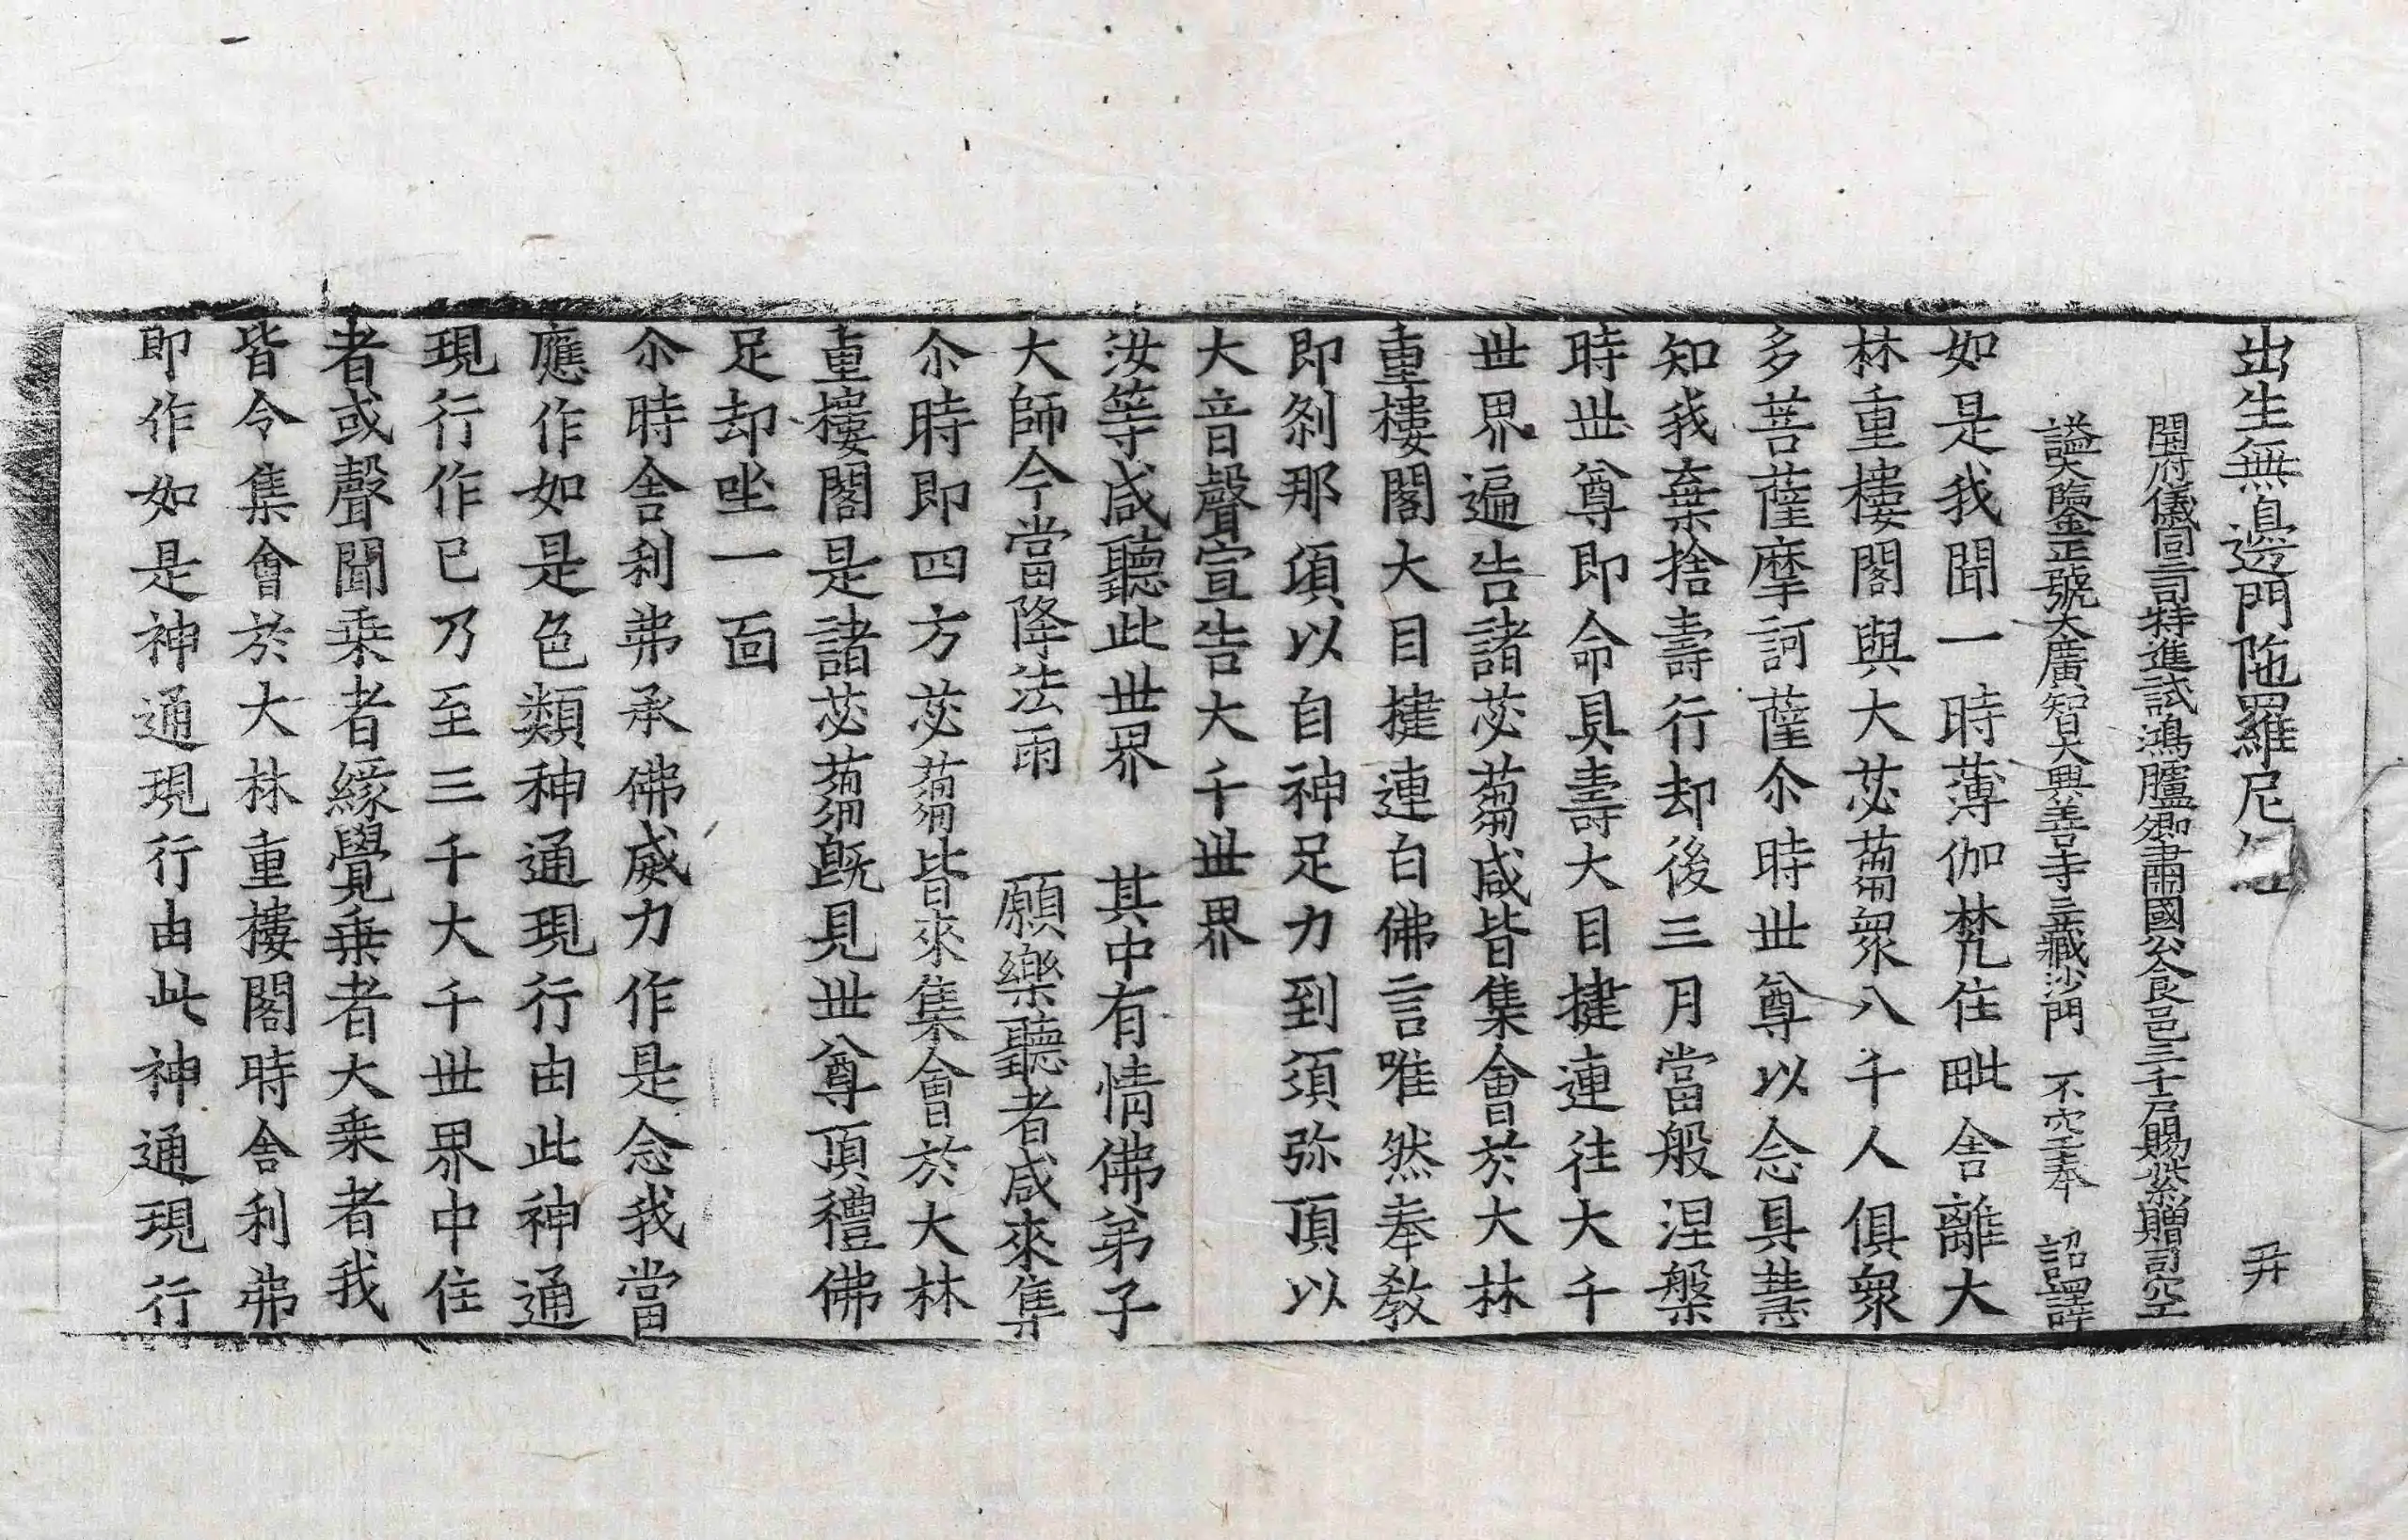 出生無邊門陁羅尼 弁
開府儀同三司特進試鴻臚卿肅國公食邑三千戶賜紫贈司空
謚大鑑正號大廣智大興善寺三藏沙門 不空奉 詔譯
如是我聞一時薄伽梵住毗舍離大
林重樓閣與大苾蒭衆八千人俱衆
多菩薩摩訶薩尒時世尊以念具慧
知我棄捨壽行却後三月當般涅槃
時世尊即命具壽大目揵連往大千
世界遍告諸苾蒭咸皆集會於大林
重樓閣大目揵連白佛言唯然奉敎
即刹那頃以自神足力到須弥頂以
大音聲宣告大千世界
汝等咸聽此世界 其中有情佛弟子
大師今當降法雨 願樂聽者咸來集
尒時即四方苾蒭皆來集會於大林
重樓閣是諸苾蒭旣見世尊頂禮佛
足却坐一面
尒時舍利弗承佛威力作是念我當
應作如是色類神通現行由此神通
現行作已乃至三千大千世界中住
者或聲聞乘者緣覺乘者大乘者我
皆令集會於大林重樓閣時舍利弗
即作如是神通現行由此神通現行